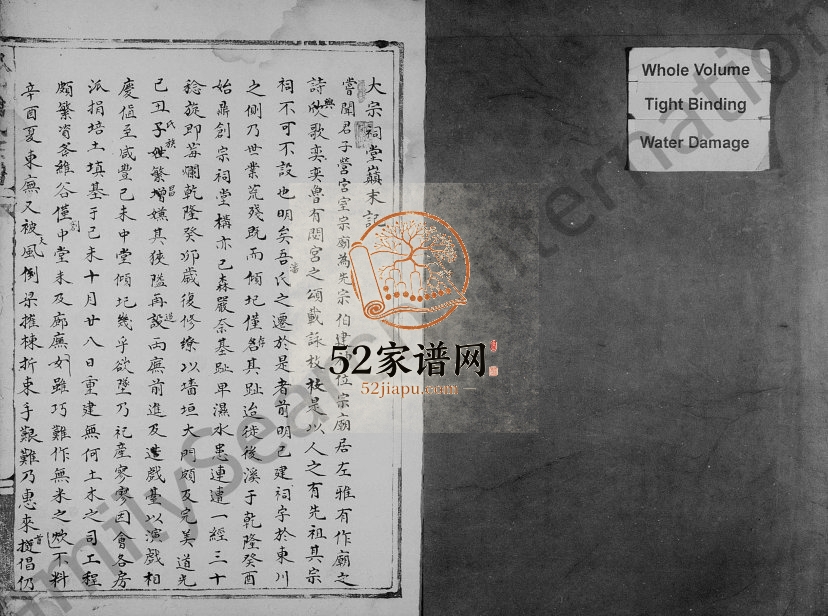 大宗祠堂巔末記
嘗聞君子營宮室宗廟為先宗伯建位宗廟居左雅有作廟之
詩與歌奕奕魯有閟宮之頌載詠枚枚是以人之有先祖其宗
祠不可不設也明矣吾氏之遷於是者前明已建祠宇於東川
之側乃世業荒殘既而傾圮僅其趾迨徙後溪于乾隆癸酉
始鼎創宗祠堂構亦已森嚴奈基趾卑濕水患連遭一經三十
稔旋即莓爛乾隆癸卯歲復修繚以墻垣大門頗及完美道光
己丑氏族繁昌增嫌其狹隘再設兩廡前進及造戲基以演戲相
慶值至咸豐己未中堂傾圮幾乎欲墜乃祀產寥寥因會各房
派捐培土填基于己未十月廿八日重建無何土木之司工程
頗繁資斧維谷僅中堂未及廊廡雖巧難作無米之炊不料
辛酉夏東廡又被風倒梁摧棟折束手艱難乃惠來提倡仍
Whole Volume
Tight Binding
Water Damage
52家谱网
52jiapu.com
FamilySearch International